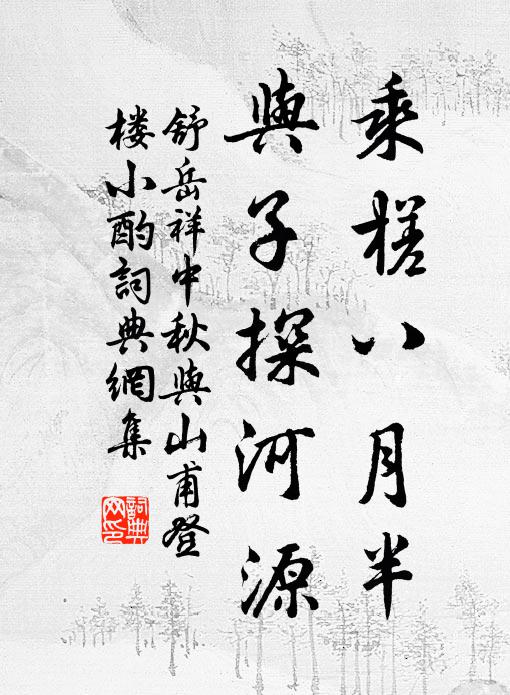 乘槎八月半
與子探河源
舒岳祥中秋與山甫登
楼小酌詞典網集
詞典
网印